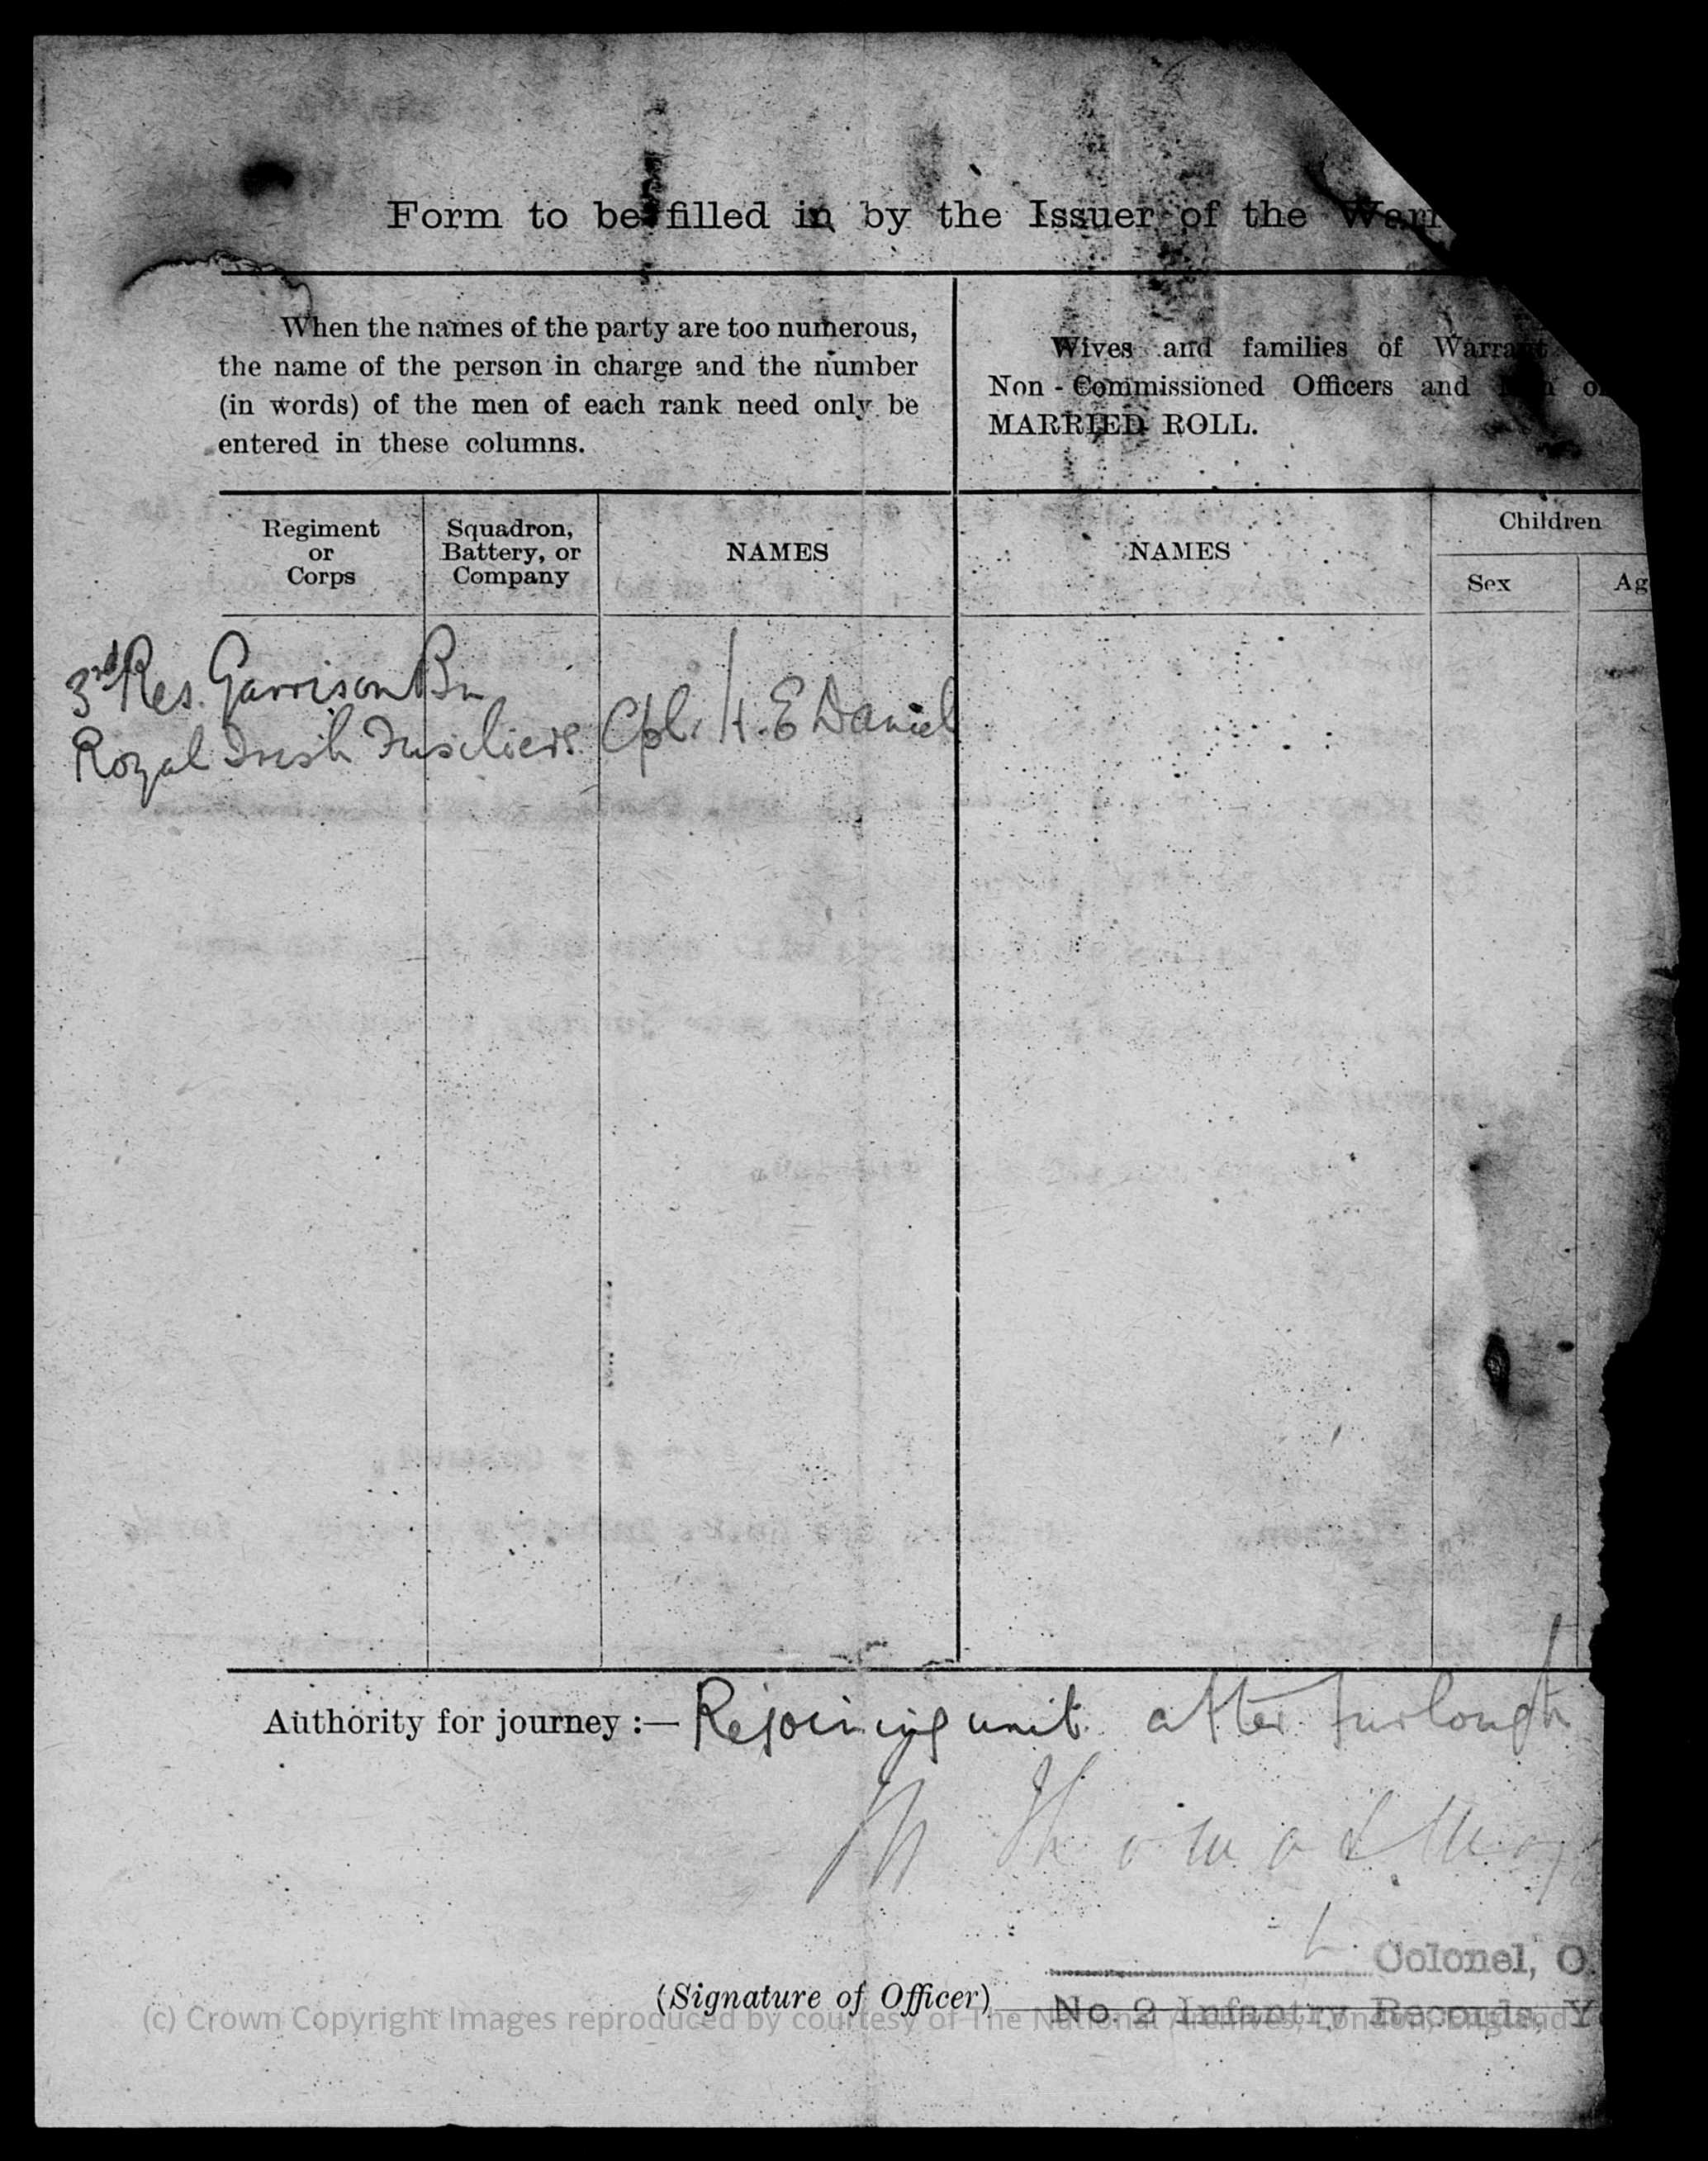 Form to be filled in by the Issuer of the Warr
When the names of the party are too numerous,
the name of the person in charge and the number
(in words) of the men of each rank need only be
entered in these columns.
Wives and families of Warrant
Non-Commissioned Officers and Men o
MARRIED ROLL.
Regiment
or
Corps
Squadron,
Battery, or
Company
NAMES
NAMES
Children
Sex
Ag
3rd Res. Garrison Bn
Royal Irish Fusiliers Cpl. H. E Daniel
Authority for journey :— Rejoining unit after furlough
Colonel, O.
(Signature of Officer)
No. 2 Infantry Records, Y
(c) Crown Copyright Images reproduced by courtesy of The National Archives, London, England